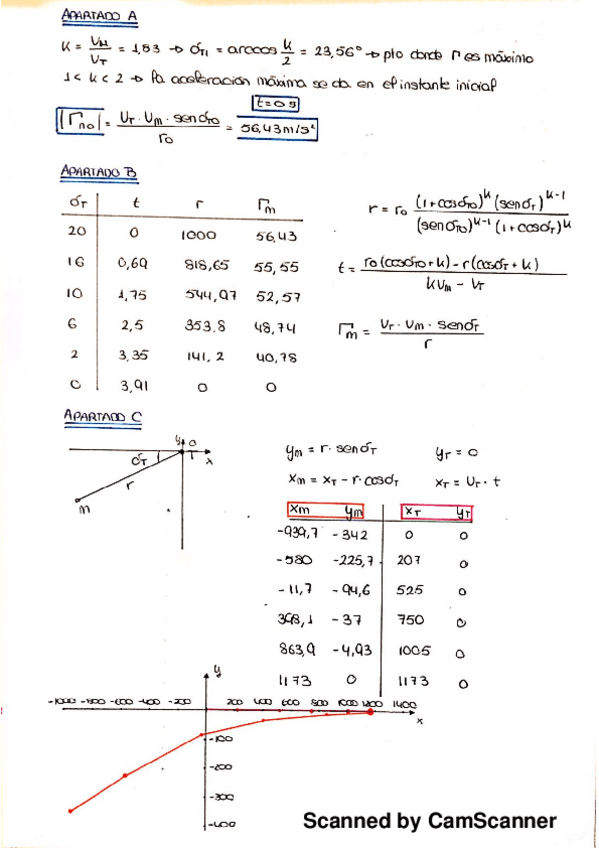 APARTADO A
K = V_M/V_T = 1,83 → σ_T1 = arccos K/2 = 23,56° → pto donde Γ es máximo
1 < K < 2 → la aceleración máxima se da en el instante inicial
t = 0 s
|Γ_no| = V_T · V_m · sen σ_T0 / r_0 = 56,43 m/s²
APARTADO B
σ_T t r Γ_m
20 0 1000 56,43
16 0,69 818,65 55,55
10 1,75 544,97 52,57
6 2,5 353,8 48,74
2 3,35 141,2 40,78
0 3,91 0 0
r = r_0 (1+cosσ_T0)^K (senσ_T)^K-1 / (senσ_T0)^K-1 (1+cosσ_T)^K
t = r_0 (cosσ_T0 + K) - r (cosσ_T + K) / K V_m - V_T
Γ_m = V_T · V_m · senσ_T / r
APARTADO C
y 0
σ_T T x
r
m
y_m = r · senσ_T y_T = 0
x_m = x_T - r · cosσ_T x_T = V_T · t
x_m y_m x_T y_T
-939,7 -342 0 0
-580 -225,7 207 0
-11,7 -94,6 525 0
398,1 -37 750 0
863,9 -4,93 1005 0
1173 0 1173 0
y
-1000 -800 -600 -400 -200 200 400 600 800 1000 1200 1400
x
-100
-200
-300
-400
Scanned by CamScanner